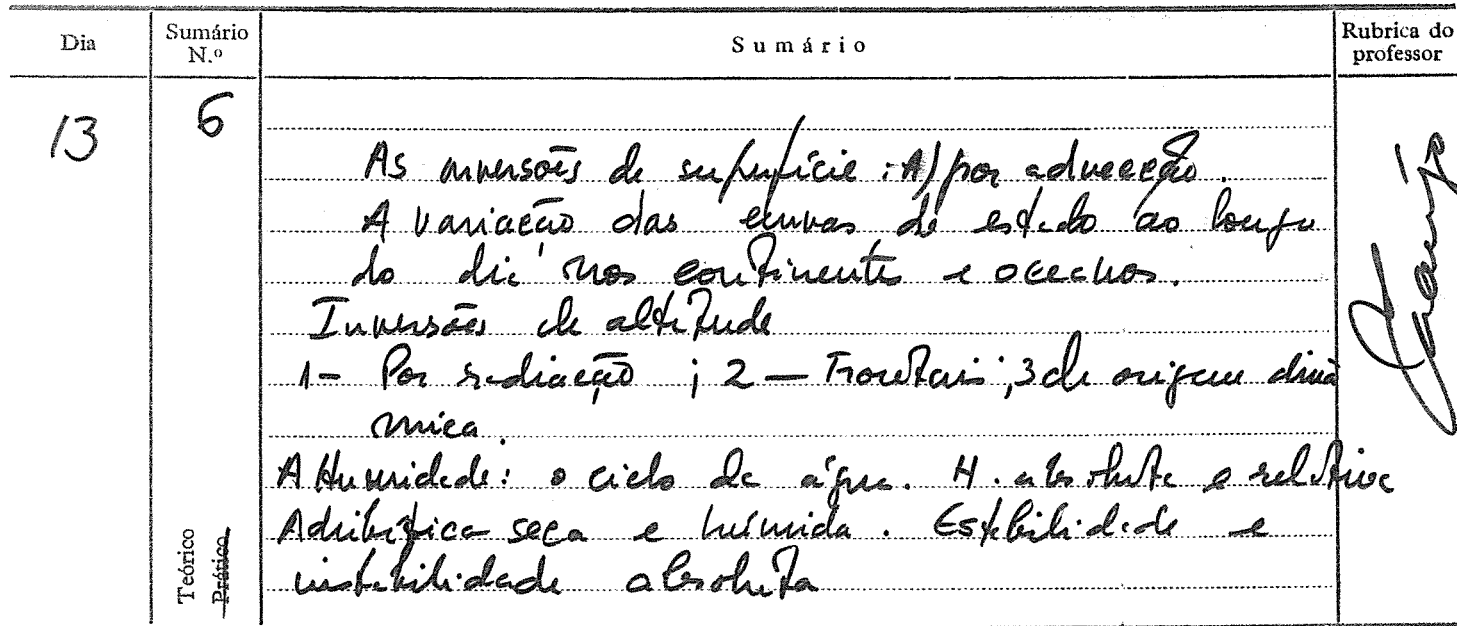 Dia
Sumário N.º
Sumário
Rubrica do professor
13
6
As inversões de superfície : A) por advecção.
A variação das curvas de estado ao longo
do dia nos continentes e oceanos.
Inversões de altitude
1- Por radiação ; 2 - Frontais ; 3 de origem dinâ
mica.
A Humidade: o ciclo da água. H. absoluta e relativa
Adiabática seca e húmida. Estabilidade e
instabilidade absoluta
Teórico
Prático